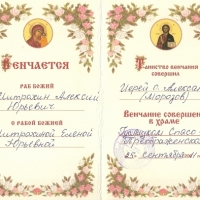 Венчается
раб Божий
Митрохин Алексей
Юрьевич
с рабой Божией
Митрохиной Еленой
Юрьевной
Таинство венчания
совершил
Иерей о. Алексан
(Морозов)
Венчание совершен
в храме
Спасо-
Преображенско
25 сентября